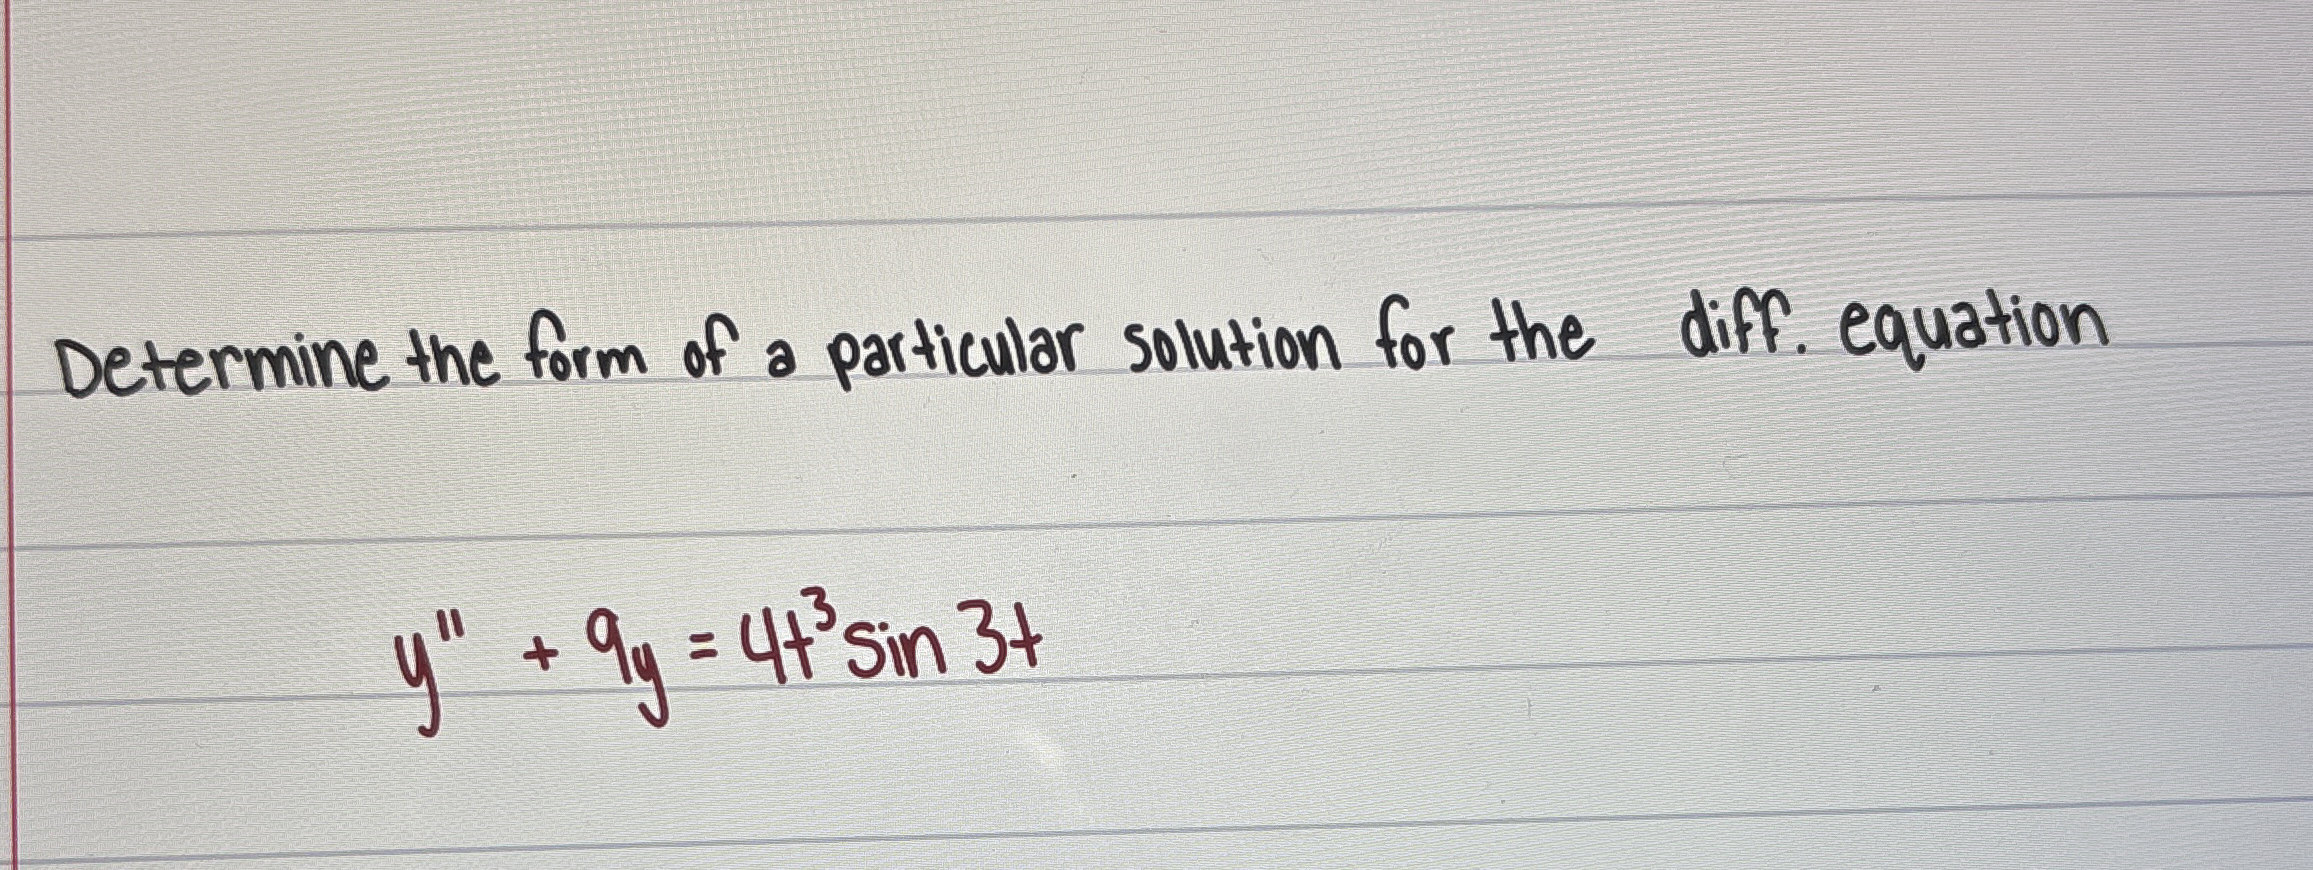 Determine the form of a particular solution for the diff. equation
y'' + 9y = 4t³ sin 3t